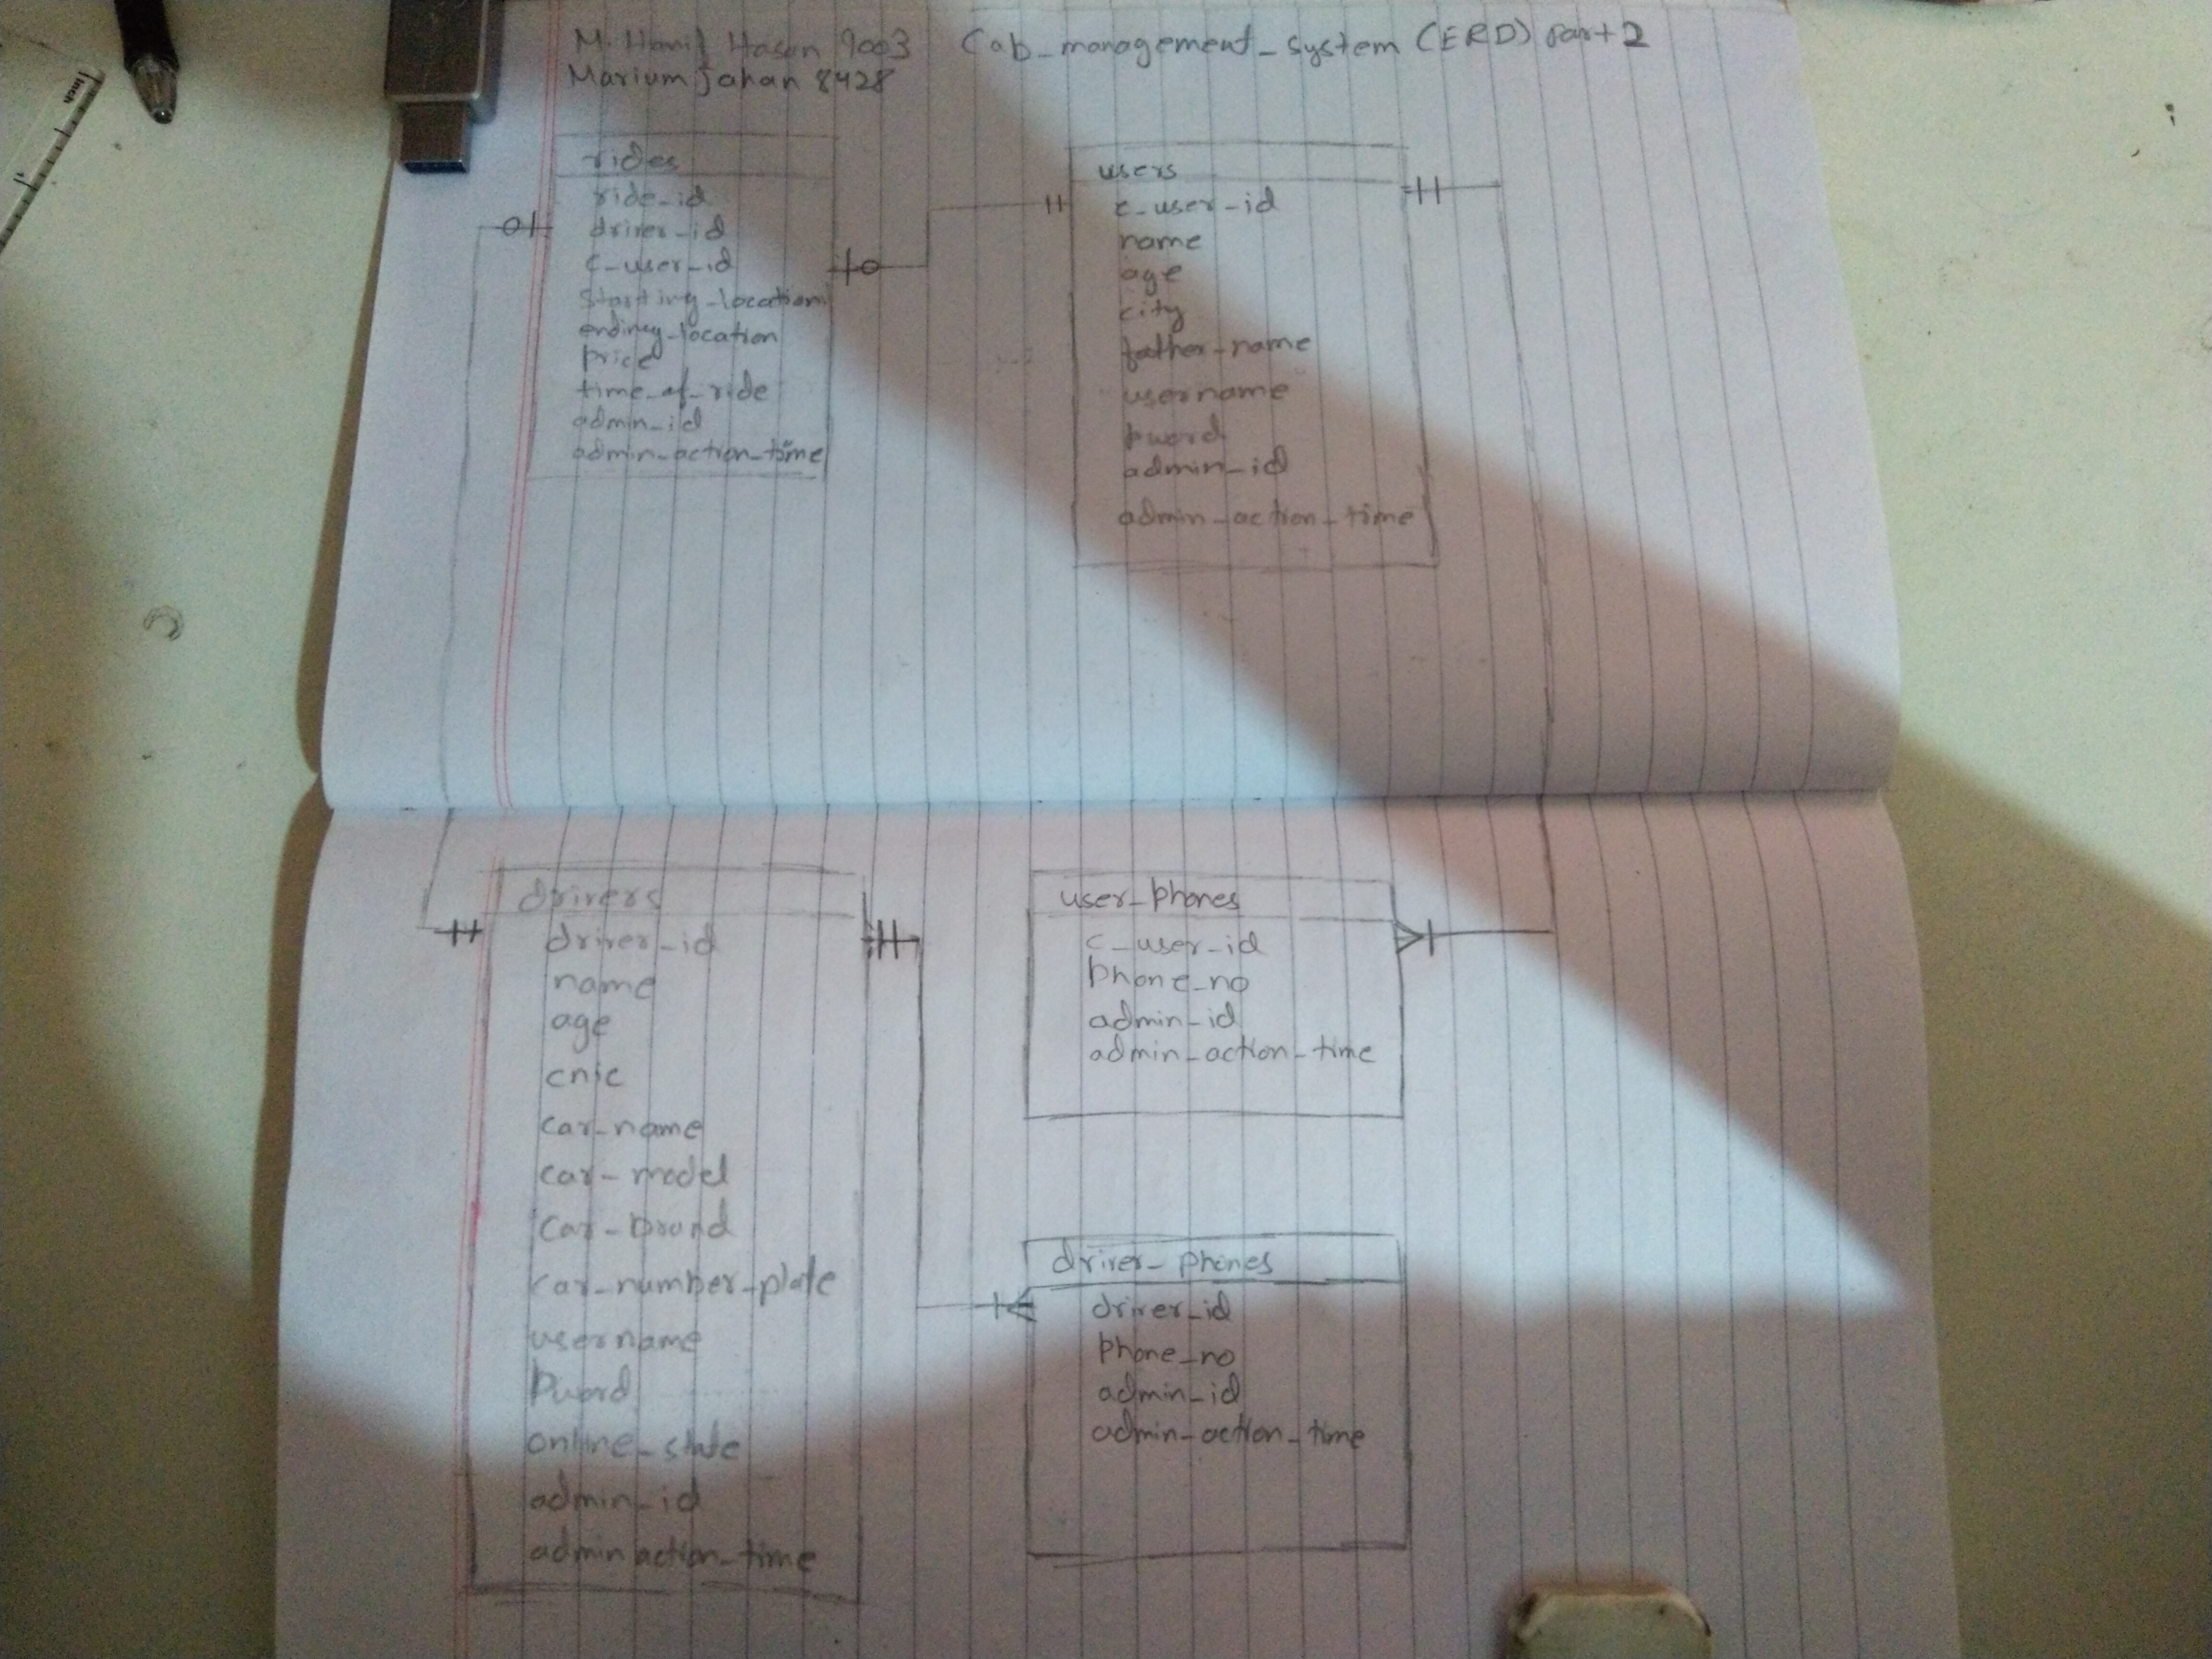 M. Hanif Hasan 9003 Cab_management_system (ERD) part 2
Marium Jahan 8428
rides
ride_id
driver_id
c_user_id
starting_location
ending_location
price
time_of_ride
admin_id
admin_action_time
users
c_user_id
name
age
city
father_name
username
pword
admin_id
admin_action_time
drivers
driver_id
name
age
cnic
car_name
car_model
car_brand
car_number_plate
username
pword
online_state
admin_id
admin action_time
user_phones
c_user_id
phone_no
admin_id
admin_action_time
driver_phones
driver_id
phone_no
admin_id
admin_action_time
Inch